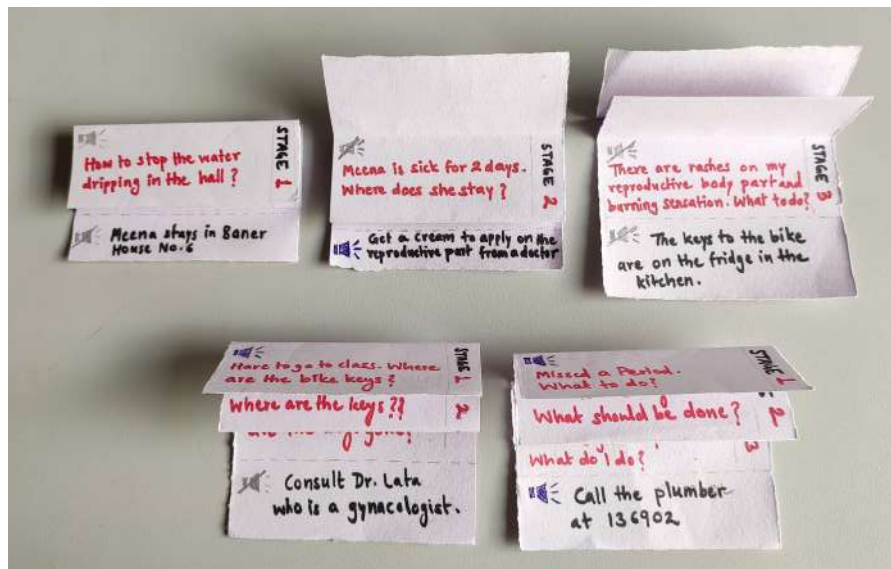 How to stop the water
dripping in the hall?
STAGE 1
Meena stays in Baner
House No. 6
Meena is sick for 2 days.
Where does she stay?
STAGE 2
Get a cream to apply on the
reproductive part from a doctor
There are rashes on my
reproductive body part and
burning sensation. What to do?
STAGE 3
The keys to the bike
are on the fridge in the
kitchen.
Have to go to class. Where
are the bike keys?
STAGE 1
Where are the keys??
2
Consult Dr. Lata
who is a gynacologist.
Missed a Period.
What to do?
STAGE 1
What should be done?
2
What do I do?
3
Call the plumber
at 136902